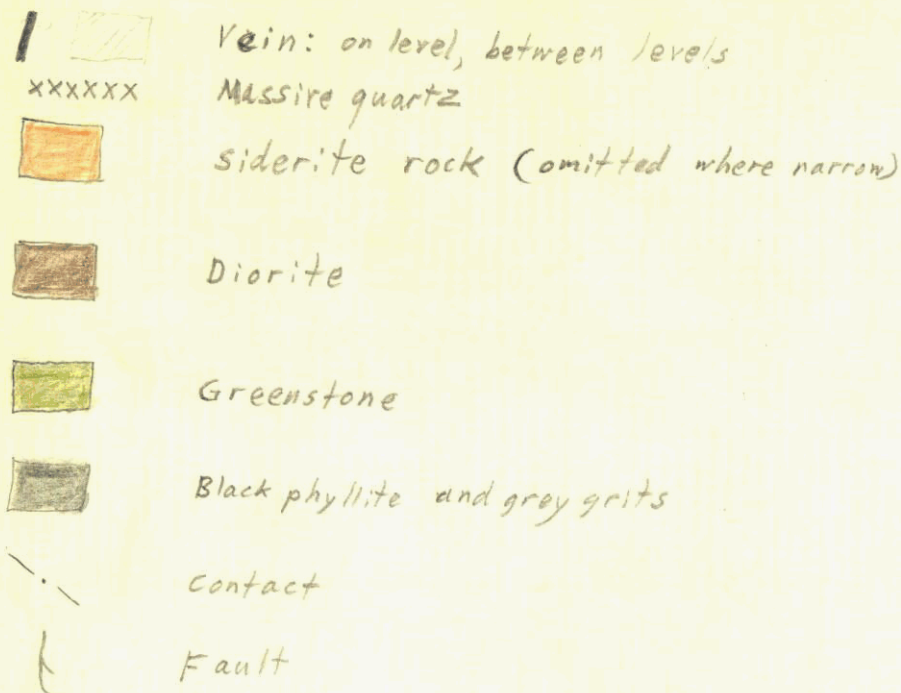 Vein: on level, between levels
xxxxxx Massive quartz
Siderite rock (omitted where narrow)
Diorite
Greenstone
Black phyllite and grey grits
Contact
Fault